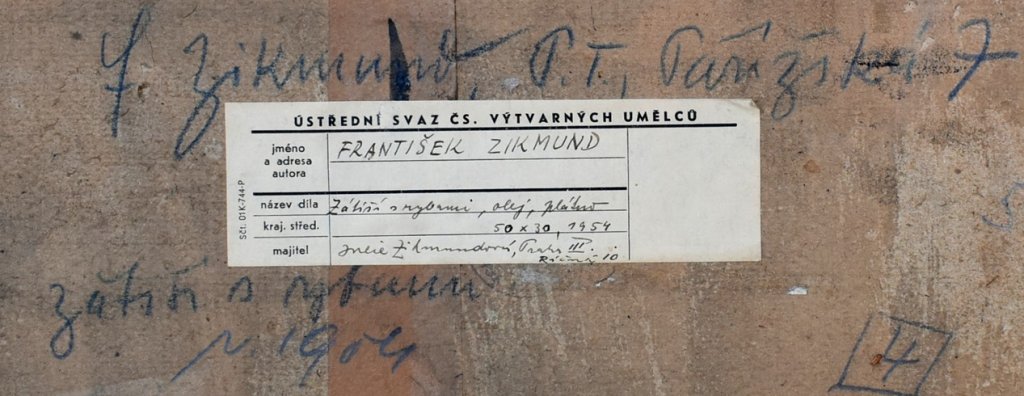 F Zikmund, P.T., Pařížská 7
ÚSTŘEDNÍ SVAZ ČS. VÝTVARNÝCH UMĚLCŮ
jméno a adresa autora FRANTIŠEK ZIKMUND
název díla Zátiší s rybami, olej, plátno
kraj. střed. 50 x 30, 1954
majitel Julie Zikmundová, Praha III.
Říčná 10
Sčt. 01K-744-P
zátiší s rybami
r 1954
4